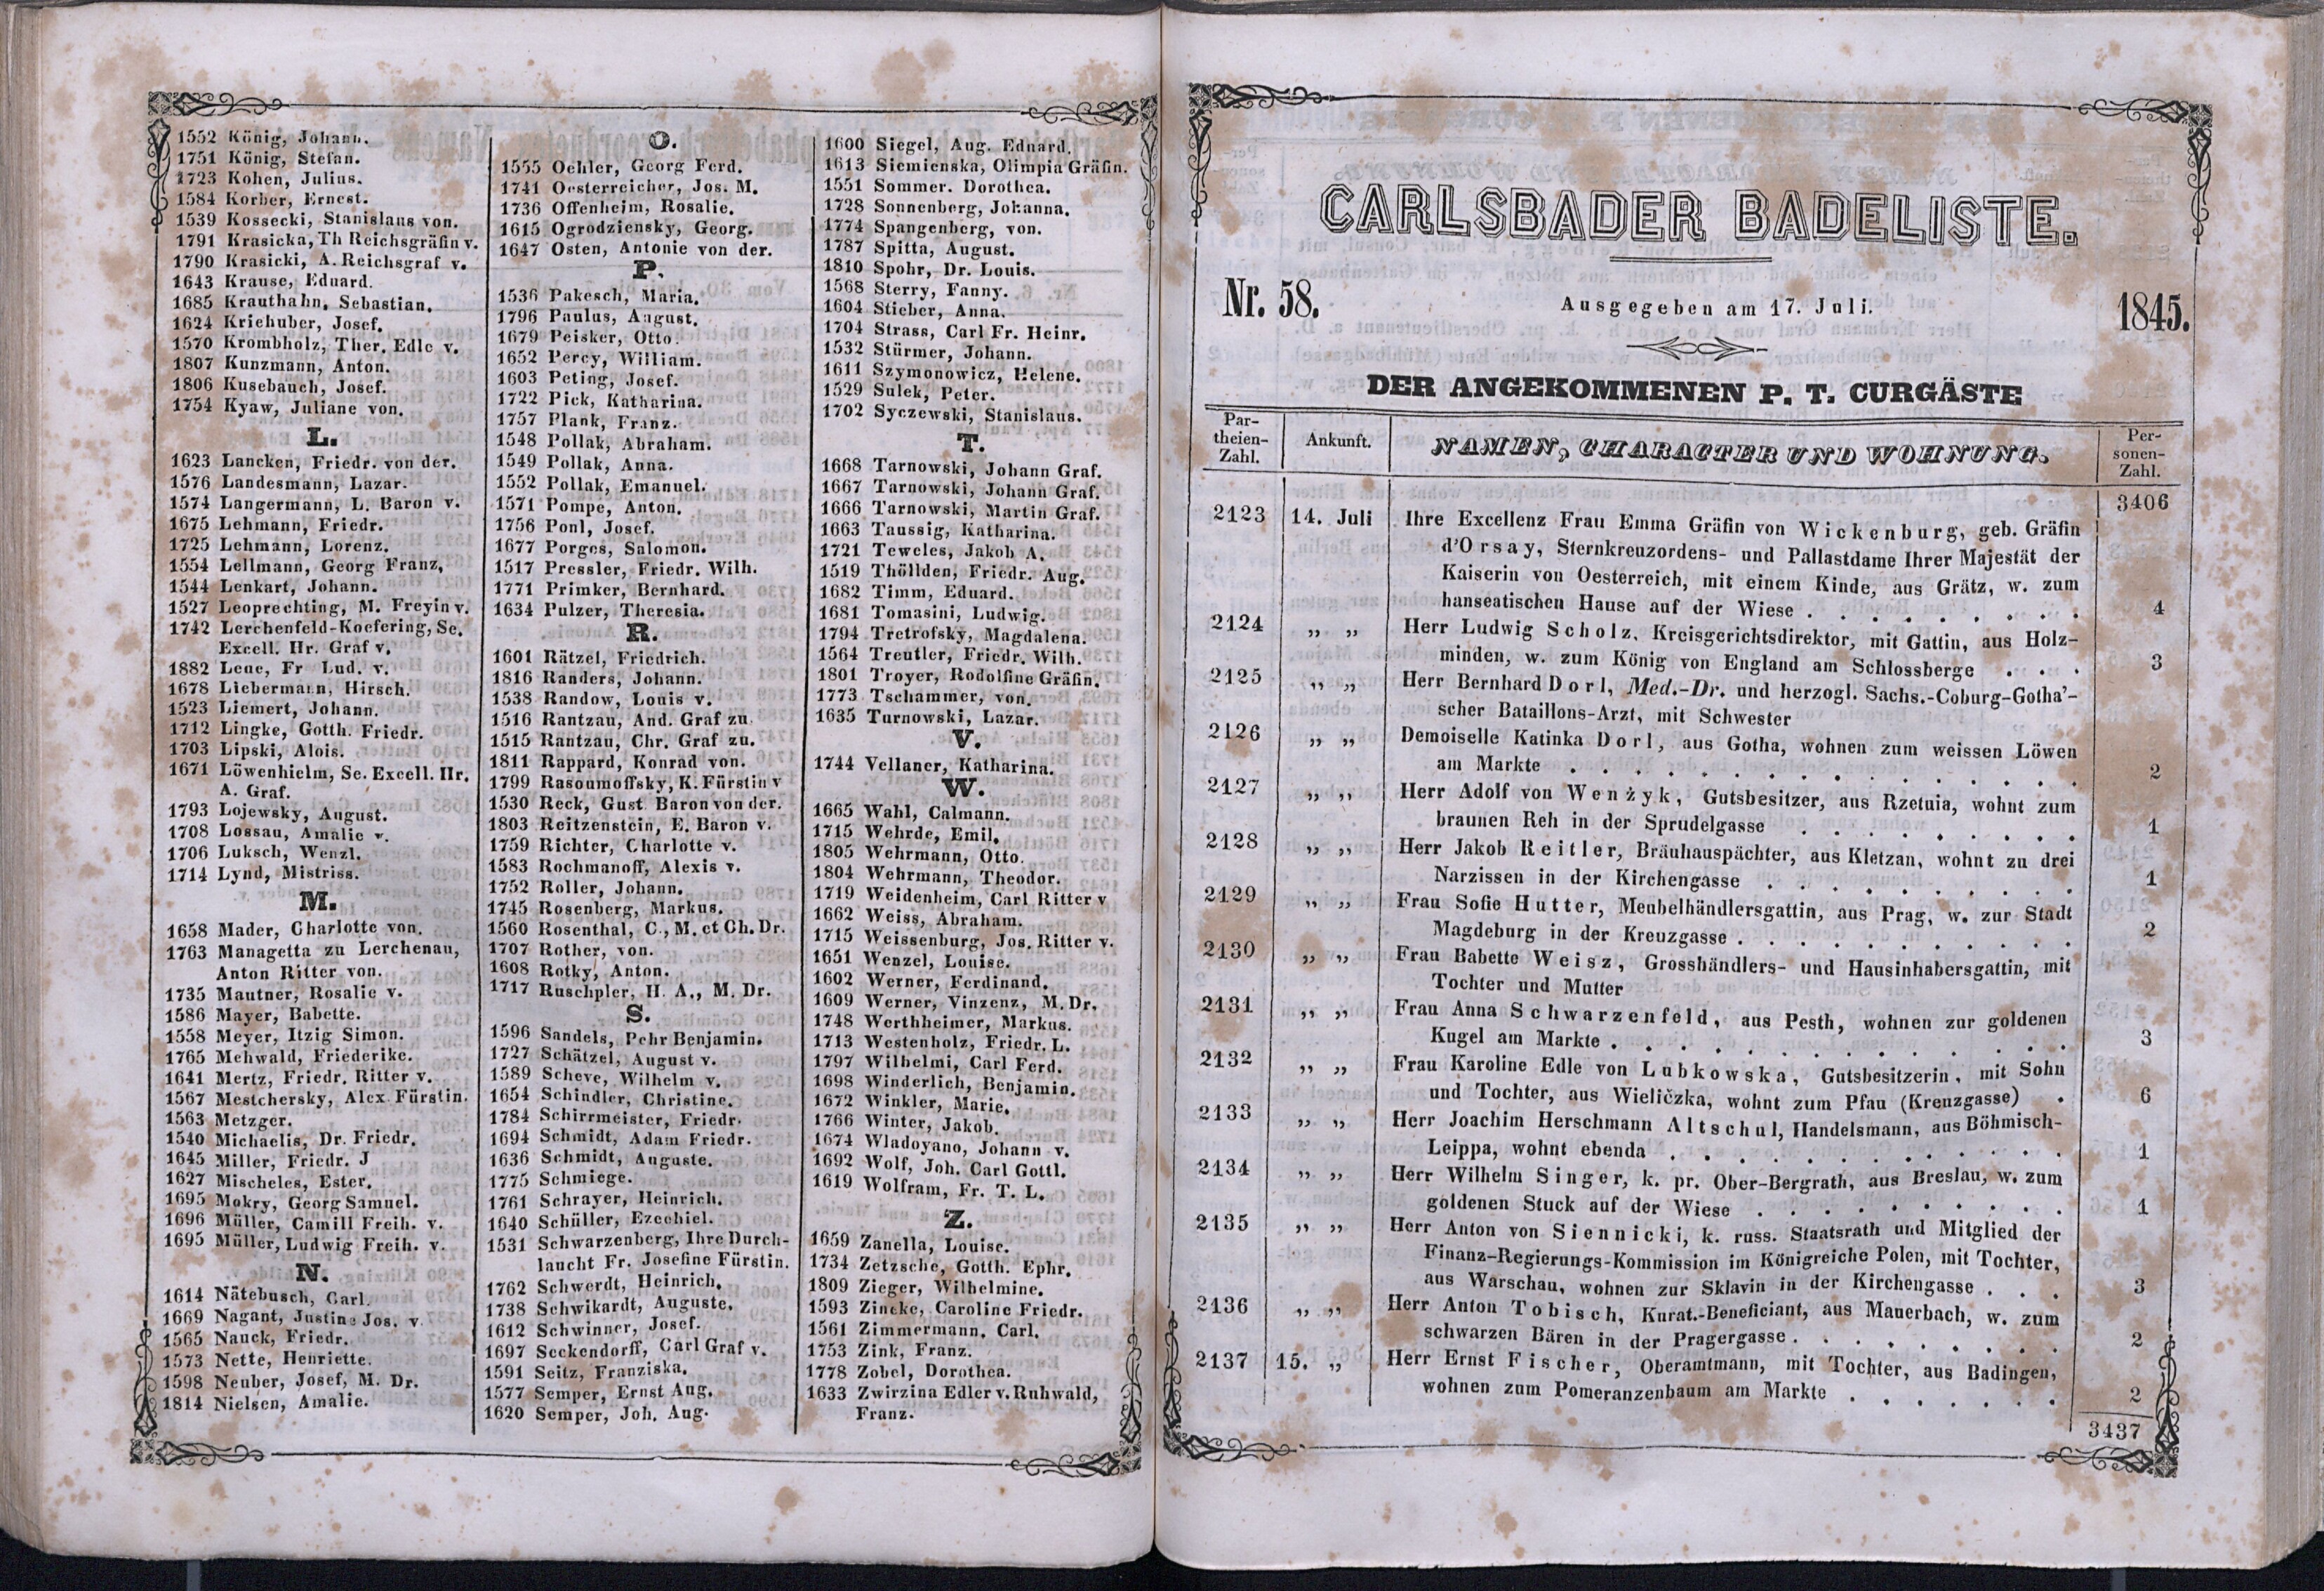 1552 König, Johann.
1751 König, Stefan.
1723 Kohen, Julius.
1584 Korber, Ernest.
1539 Kossecki, Stanislaus von.
1791 Krasicka, Th Reichsgräfin v.
1790 Krasicki, A. Reichsgraf v.
1643 Krause, Eduard.
1685 Krauthahn, Sebastian.
1624 Kriehuber, Josef.
1570 Krombholz, Ther. Edle v.
1807 Kunzmann, Anton.
1806 Kusebauch, Josef.
1754 Kyaw, Juliane von.
L.
1623 Lancken, Friedr. von der.
1576 Landesmann, Lazar.
1574 Langermann, L. Baron v.
1675 Lehmann, Friedr.
1725 Lehmann, Lorenz.
1554 Lellmann, Georg Franz,
1544 Lenkart, Johann.
1527 Leoprechting, M. Freyin v.
1742 Lerchenfeld-Koefering, Se.
Excell. Hr. Graf v.
1882 Leue, Fr Lud. v.
1678 Liebermann, Hirsch.
1523 Liemert, Johann.
1712 Lingke, Gotth. Friedr.
1703 Lipski, Alois.
1671 Löwenhielm, Se. Excell. Hr.
A. Graf.
1793 Lojewsky, August.
1708 Lossau, Amalie v.
1706 Luksch, Wenzl.
1714 Lynd, Mistriss.
M.
1658 Mader, Charlotte von.
1763 Managetta zu Lerchenau,
Anton Ritter von.
1735 Mautner, Rosalie v.
1586 Mayer, Babette.
1558 Meyer, Itzig Simon.
1765 Mehwald, Friederike.
1641 Mertz, Friedr. Ritter v.
1567 Mestchersky, Alex Fürstin.
1563 Metzger.
1540 Michaelis, Dr. Friedr.
1645 Miller, Friedr. J
1627 Mischeles, Ester.
1695 Mokry, Georg Samuel.
1696 Müller, Camill Freih. v.
1695 Müller, Ludwig Freih. v.
N.
1614 Nätebusch, Carl.
1669 Nagant, Justine Jos. v.
1565 Nauck, Friedr.
1573 Nette, Henriette.
1598 Neuber, Josef, M. Dr.
1814 Nielsen, Amalie.
O.
1555 Oehler, Georg Ferd.
1741 Oesterreicher, Jos. M.
1736 Offenheim, Rosalie.
1615 Ogrodziensky, Georg.
1647 Osten, Antonie von der.
P.
1536 Pakesch, Maria.
1796 Paulus, August.
1679 Peisker, Otto.
1652 Percy, William.
1603 Peting, Josef.
1722 Pick, Katharina.
1757 Plank, Franz.
1548 Pollak, Abraham.
1549 Pollak, Anna.
1552 Pollak, Emanuel.
1571 Pompe, Anton.
1756 Ponl, Josef.
1677 Porges, Salomon.
1517 Pressler, Friedr. Wilh.
1771 Primker, Bernhard.
1634 Pulzer, Theresia.
R.
1601 Rätzel, Friedrich.
1816 Randers, Johann.
1538 Randow, Louis v.
1516 Rantzau, And. Graf zu
1515 Rantzau, Chr. Graf zu.
1811 Rappard, Konrad von.
1799 Rasoumoffsky, K. Fürstin v
1530 Reck, Gust. Baron von der.
1803 Reitzenstein, E. Baron v.
1759 Richter, Charlotte v.
1583 Rochmanoff, Alexis v.
1752 Roller, Johann.
1745 Rosenberg, Markus.
1560 Rosenthal, C., M. et Ch. Dr.
1707 Rother, von.
1608 Rotky, Anton.
1717 Ruschpler, H. A., M. Dr.
S.
1596 Sandels, Pehr Benjamin.
1727 Schätzel, August v.
1589 Scheve, Wilhelm v.
1654 Schindler, Christine.
1784 Schirrmeister, Friedr.
1694 Schmidt, Adam Friedr.
1636 Schmidt, Auguste.
1775 Schmiege.
1761 Schrayer, Heinrich.
1640 Schüller, Ezechiel.
1531 Schwarzenberg, Ihre Durch-
laucht Fr. Josefine Fürstin.
1762 Schwerdt, Heinrich.
1738 Schwikardt, Auguste.
1612 Schwinner, Josef.
1697 Seckendorff, Carl Graf v.
1591 Seitz, Franziska.
1577 Semper, Ernst Aug.
1620 Semper, Joh. Aug.
1600 Siegel, Aug. Eduard.
1613 Siemienska, Olimpia Gräfin.
1551 Sommer. Dorothea.
1728 Sonnenberg, Johanna.
1774 Spangenberg, von.
1787 Spitta, August.
1810 Spohr, Dr. Louis.
1568 Sterry, Fanny.
1604 Stieber, Anna.
1704 Strass, Carl Fr. Heinr.
1532 Stürmer, Johann.
1611 Szymonowicz, Helene.
1529 Sulek, Peter.
1702 Syczewski, Stanislaus.
T.
1668 Tarnowski, Johann Graf.
1667 Tarnowski, Johann Graf.
1666 Tarnowski, Martin Graf.
1663 Taussig, Katharina.
1721 Teweles, Jakob A.
1519 Thöllden, Friedr. Aug.
1682 Timm, Eduard.
1681 Tomasini, Ludwig.
1794 Tretrofsky, Magdalena.
1564 Treutler, Friedr. Wilh.
1801 Troyer, Rodolfine Gräfin.
1773 Tschammer, von.
1635 Turnowski, Lazar.
V.
1744 Vellaner, Katharina.
W.
1665 Wahl, Calmann.
1715 Wehrde, Emil.
1805 Wehrmann, Otto.
1804 Wehrmann, Theodor.
1719 Weidenheim, Carl Ritter v
1662 Weiss, Abraham.
1715 Weissenburg, Jos. Ritter v.
1651 Wenzel, Louise.
1602 Werner, Ferdinand.
1609 Werner, Vinzenz, M. Dr.
1748 Werthheimer, Markus.
1713 Westenholz, Friedr. L.
1797 Wilhelmi, Carl Ferd.
1698 Winderlich, Benjamin.
1672 Winkler, Marie.
1766 Winter, Jakob.
1674 Wladoyano, Johann v.
1692 Wolf, Joh. Carl Gottl.
1619 Wolfram, Fr. T. L.
Z.
1659 Zanella, Louise.
1734 Zetzsche, Gotth. Ephr.
1809 Zieger, Wilhelmine.
1593 Zincke, Caroline Friedr.
1561 Zimmermann, Carl.
1753 Zink, Franz.
1778 Zobel, Dorothea.
1633 Zwirzina Edler v. Ruhwald,
Franz.
CARLSBADER BADELISTE.
Nr. 58. Ausgegeben am 17. Juli. 1845.
DER ANGEKOMMENEN P. T. CURGÄSTE
Par-theien-Zahl. Ankunft. NAMEN, CHARACTER UND WOHNUNG. Per-sonen-Zahl.
3406
2123 14. Juli Ihre Excellenz Frau Emma Gräfin von Wickenburg, geb. Gräfin
d'Orsay, Sternkreuzordens- und Pallastdame Ihrer Majestät der
Kaiserin von Oesterreich, mit einem Kinde, aus Grätz, w. zum
hanseatischen Hause auf der Wiese . . . . . . . . 4
2124 „ „ Herr Ludwig Scholz, Kreisgerichtsdirektor, mit Gattin, aus Holz-
minden, w. zum König von England am Schlossberge . . . 3
2125 „ „ Herr Bernhard Dorl, Med.-Dr. und herzogl. Sachs.-Coburg-Gotha'-
scher Bataillons-Arzt, mit Schwester
2126 „ „ Demoiselle Katinka Dorl, aus Gotha, wohnen zum weissen Löwen
am Markte . . . . . . . . . . . . . 2
2127 „ „ Herr Adolf von Wenżyk, Gutsbesitzer, aus Rzetuia, wohnt zum
braunen Reh in der Sprudelgasse . . . . . . . . 1
2128 „ „ Herr Jakob Reitler, Bräuhauspächter, aus Kletzan, wohnt zu drei
Narzissen in der Kirchengasse . . . . . . . . . 1
2129 „ „ Frau Sofie Hutter, Meubelhändlersgattin, aus Prag, w. zur Stadt
Magdeburg in der Kreuzgasse . . . . . . . . . . 2
2130 „ „ Frau Babette Weisz, Grosshändlers- und Hausinhabersgattin, mit
Tochter und Mutter
2131 „ „ Frau Anna Schwarzenfeld, aus Pesth, wohnen zur goldenen
Kugel am Markte . . . . . . . . . . . . . 3
2132 „ „ Frau Karoline Edle von Lubkowska, Gutsbesitzerin, mit Sohn
und Tochter, aus Wieliczka, wohnt zum Pfau (Kreuzgasse) . 6
2133 „ „ Herr Joachim Herschmann Altschul, Handelsmann, aus Böhmisch-
Leippa, wohnt ebenda . . . . . . . . . . . 1
2134 „ „ Herr Wilhelm Singer, k. pr. Ober-Bergrath, aus Breslau, w. zum
goldenen Stuck auf der Wiese . . . . . . . . . 1
2135 „ „ Herr Anton von Siennicki, k. russ. Staatsrath und Mitglied der
Finanz-Regierungs-Kommission im Königreiche Polen, mit Tochter,
aus Warschau, wohnen zur Sklavin in der Kirchengasse . . . 3
2136 „ „ Herr Anton Tobisch, Kurat.-Beneficiant, aus Mauerbach, w. zum
schwarzen Bären in der Pragergasse . . . . . . . 2
2137 15. „ Herr Ernst Fischer, Oberamtmann, mit Tochter, aus Badingen,
wohnen zum Pomeranzenbaum am Markte . . . . . . . 2
3437